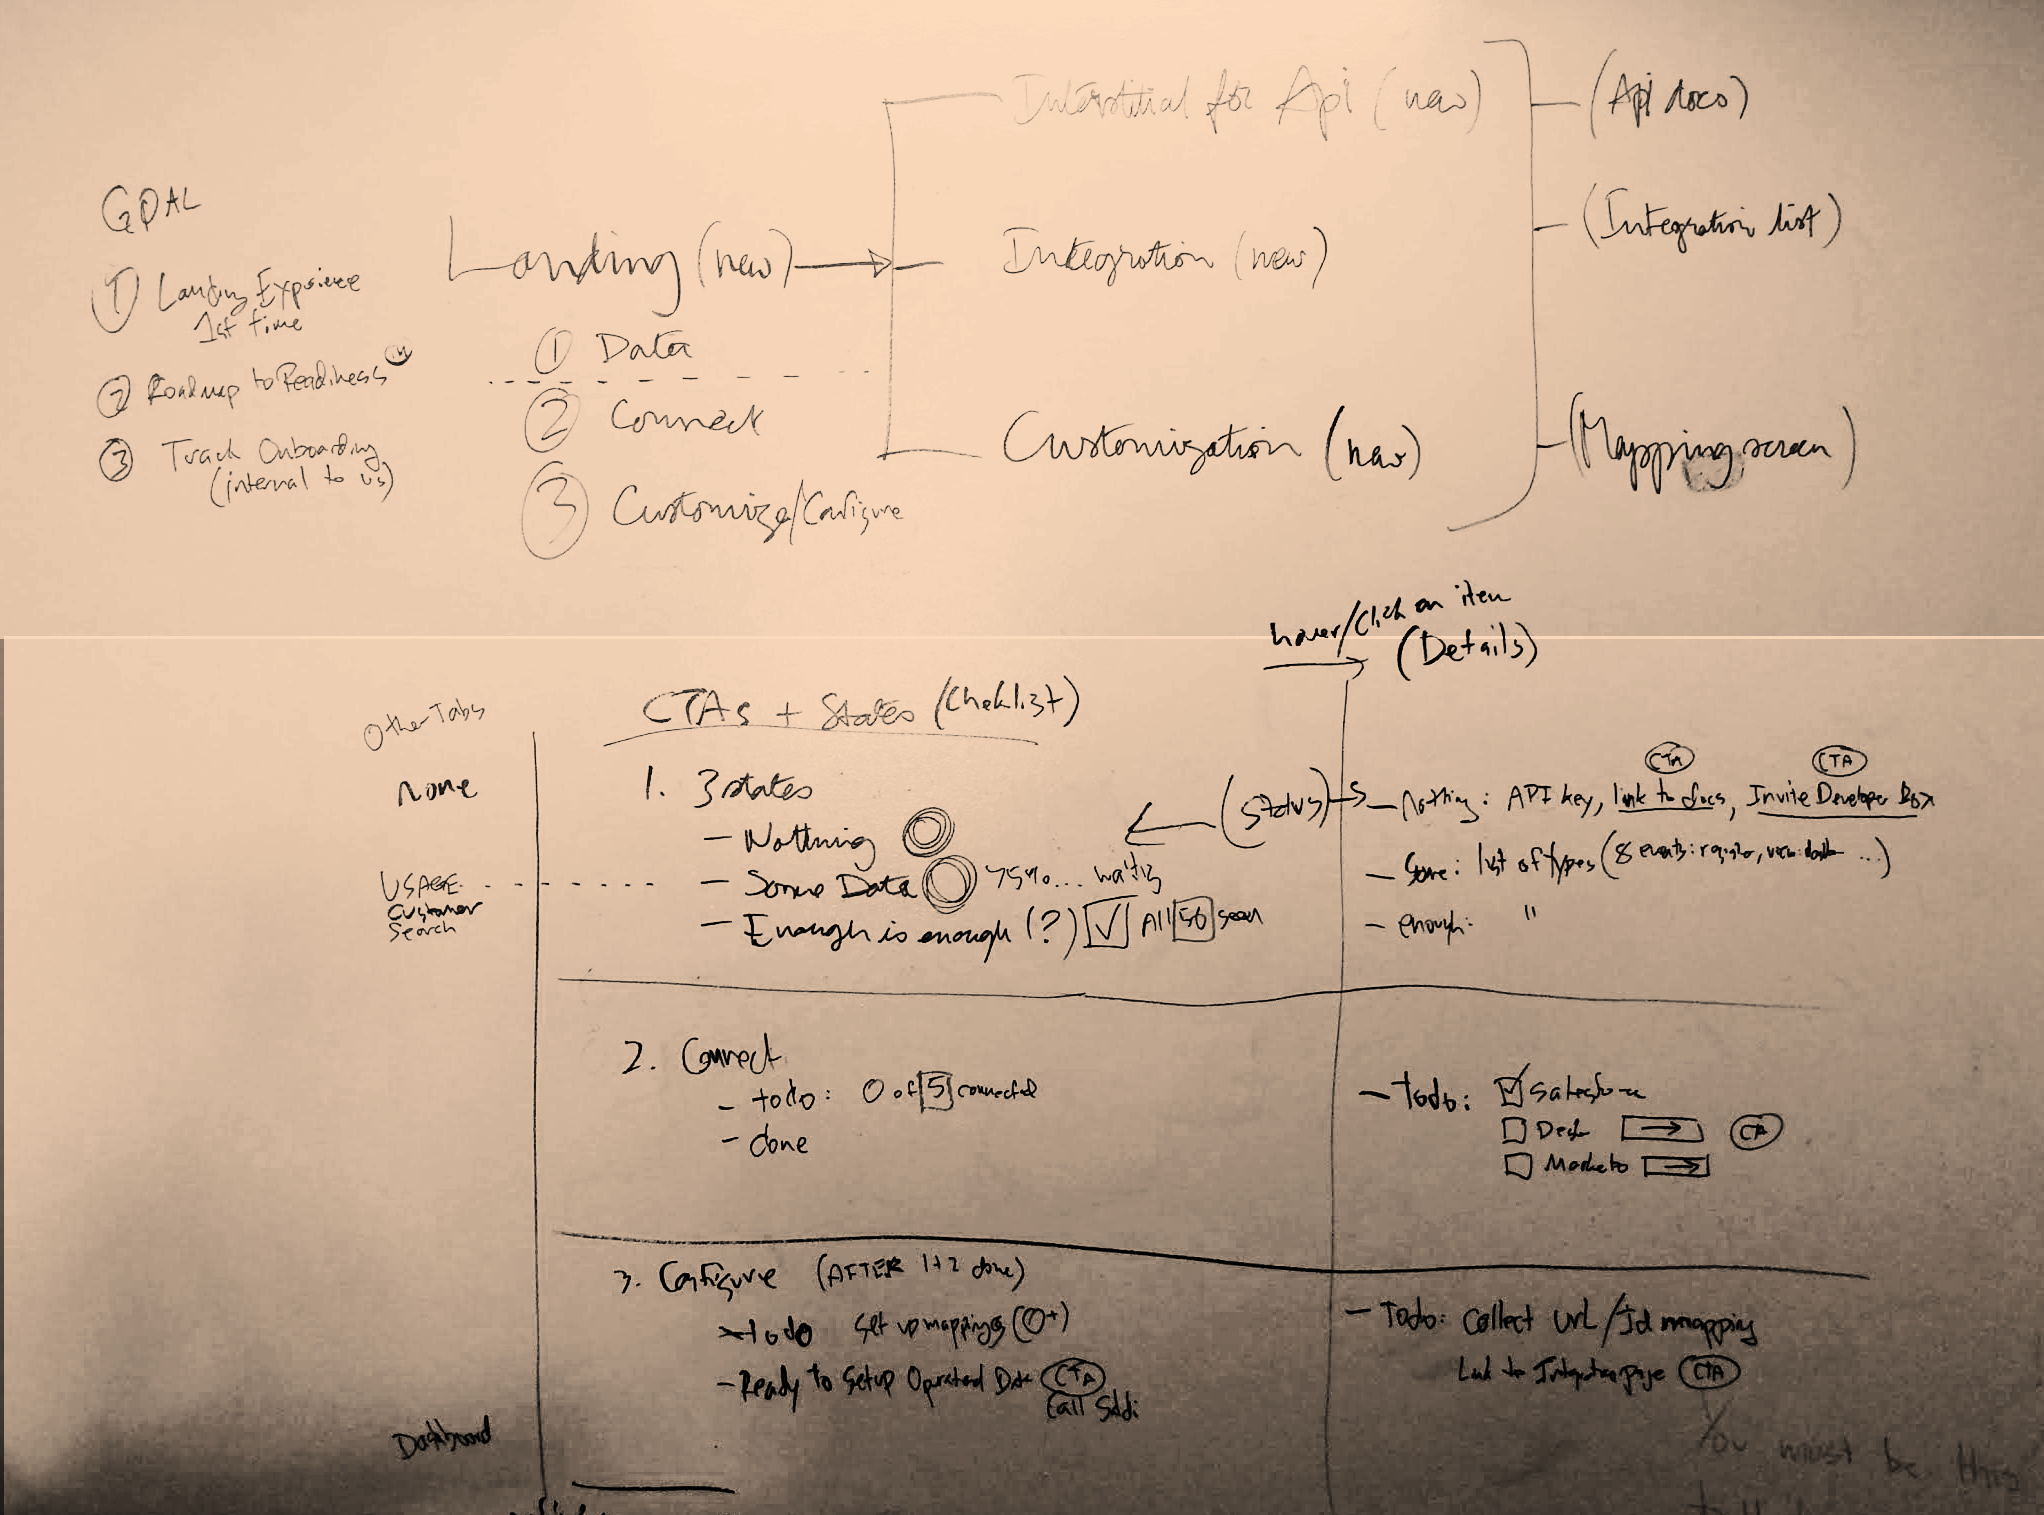 GOAL
① Landing Experience
1st time
② Roadmap to Readiness TM
③ Track Onboarding
(internal to us)
Landing (new)
① Data
② Connect
③ Customize/Configure
Interstitial for Api (new)
Integration (new)
Customization (new)
(Api docs)
(Integration list)
(Mapping screen)
hover/Click on item
(Details)
Other Tabs
none
USAGE
Customer
Search
Dashboard
CTAs + States (Cheklist)
1. 3 states
- Nothing
- Some Data 75%... waiting
- Enough is enough (?) ✓ All 50 seen
(status)
CTA CTA
- nothing: API key, link to docs, Invite Developer Box
- Some: list of types (8 events: register, ...)
- enough: "
2. Connect
- todo: 0 of 5 connected
- done
- Todo: ☑ Salesforce
☐ Desk → CTA
☐ Marketo →
3. Configure (AFTER 1+2 done)
- todo Set up mappings (0+)
- Ready to Setup Data CTA
Call
- Todo: Collect URL/Id mapping
Link to Integration page CTA
You must be this